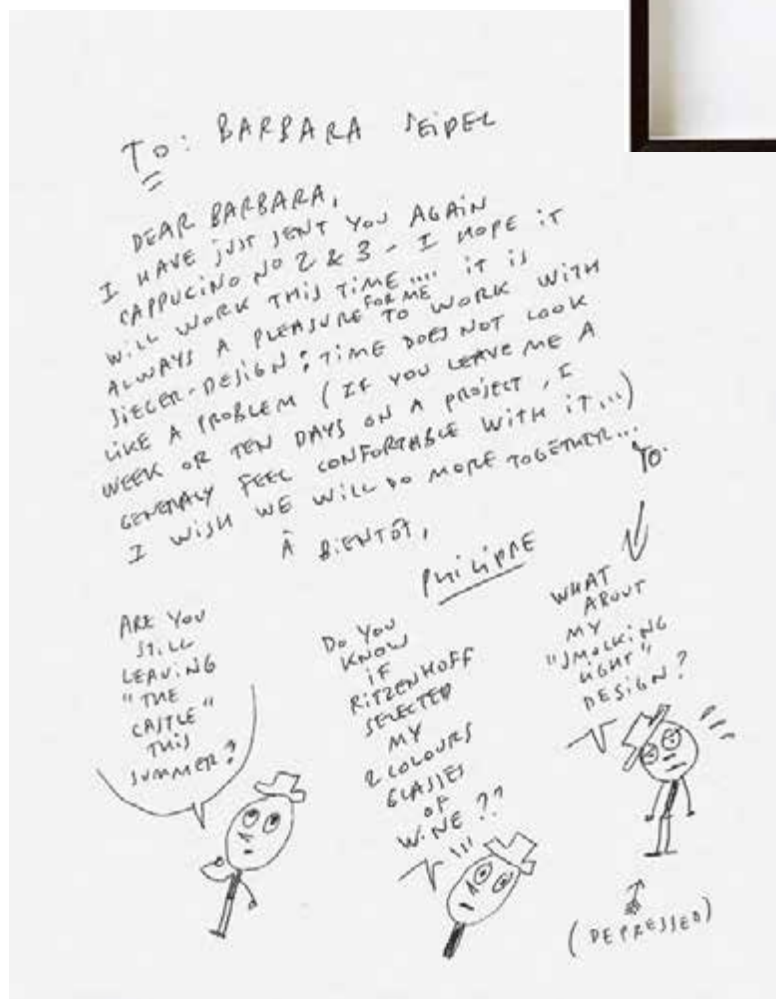 TO: BARBARA SEIPEL
DEAR BARBARA,
I HAVE JUST SENT YOU AGAIN
CAPPUCINO NO 2 & 3 - I HOPE IT
WILL WORK THIS TIME.... IT IS
ALWAYS A PLEASURE FOR ME TO WORK WITH
SIEGER-DESIGN: TIME DOES NOT LOOK
LIKE A PROBLEM (IF YOU LEAVE ME A
WEEK OR TEN DAYS ON A PROJECT, I
GENERALY FEEL CONFORTABLE WITH IT...)
I WISH WE WILL DO MORE TOGETHER...
À BIENTÔT,
PHILIPPE
ARE YOU
STILL
LEAVING
"THE
CASTLE"
THIS
SUMMER?
DO YOU
KNOW
IF
RITZENHOFF
SELECTED
MY
2 COLOURS
GLASSES
OF
WINE ??
TO.
WHAT
ABOUT
MY
"SMOCKING
LIGHT"
DESIGN?
(DEPRESSED)